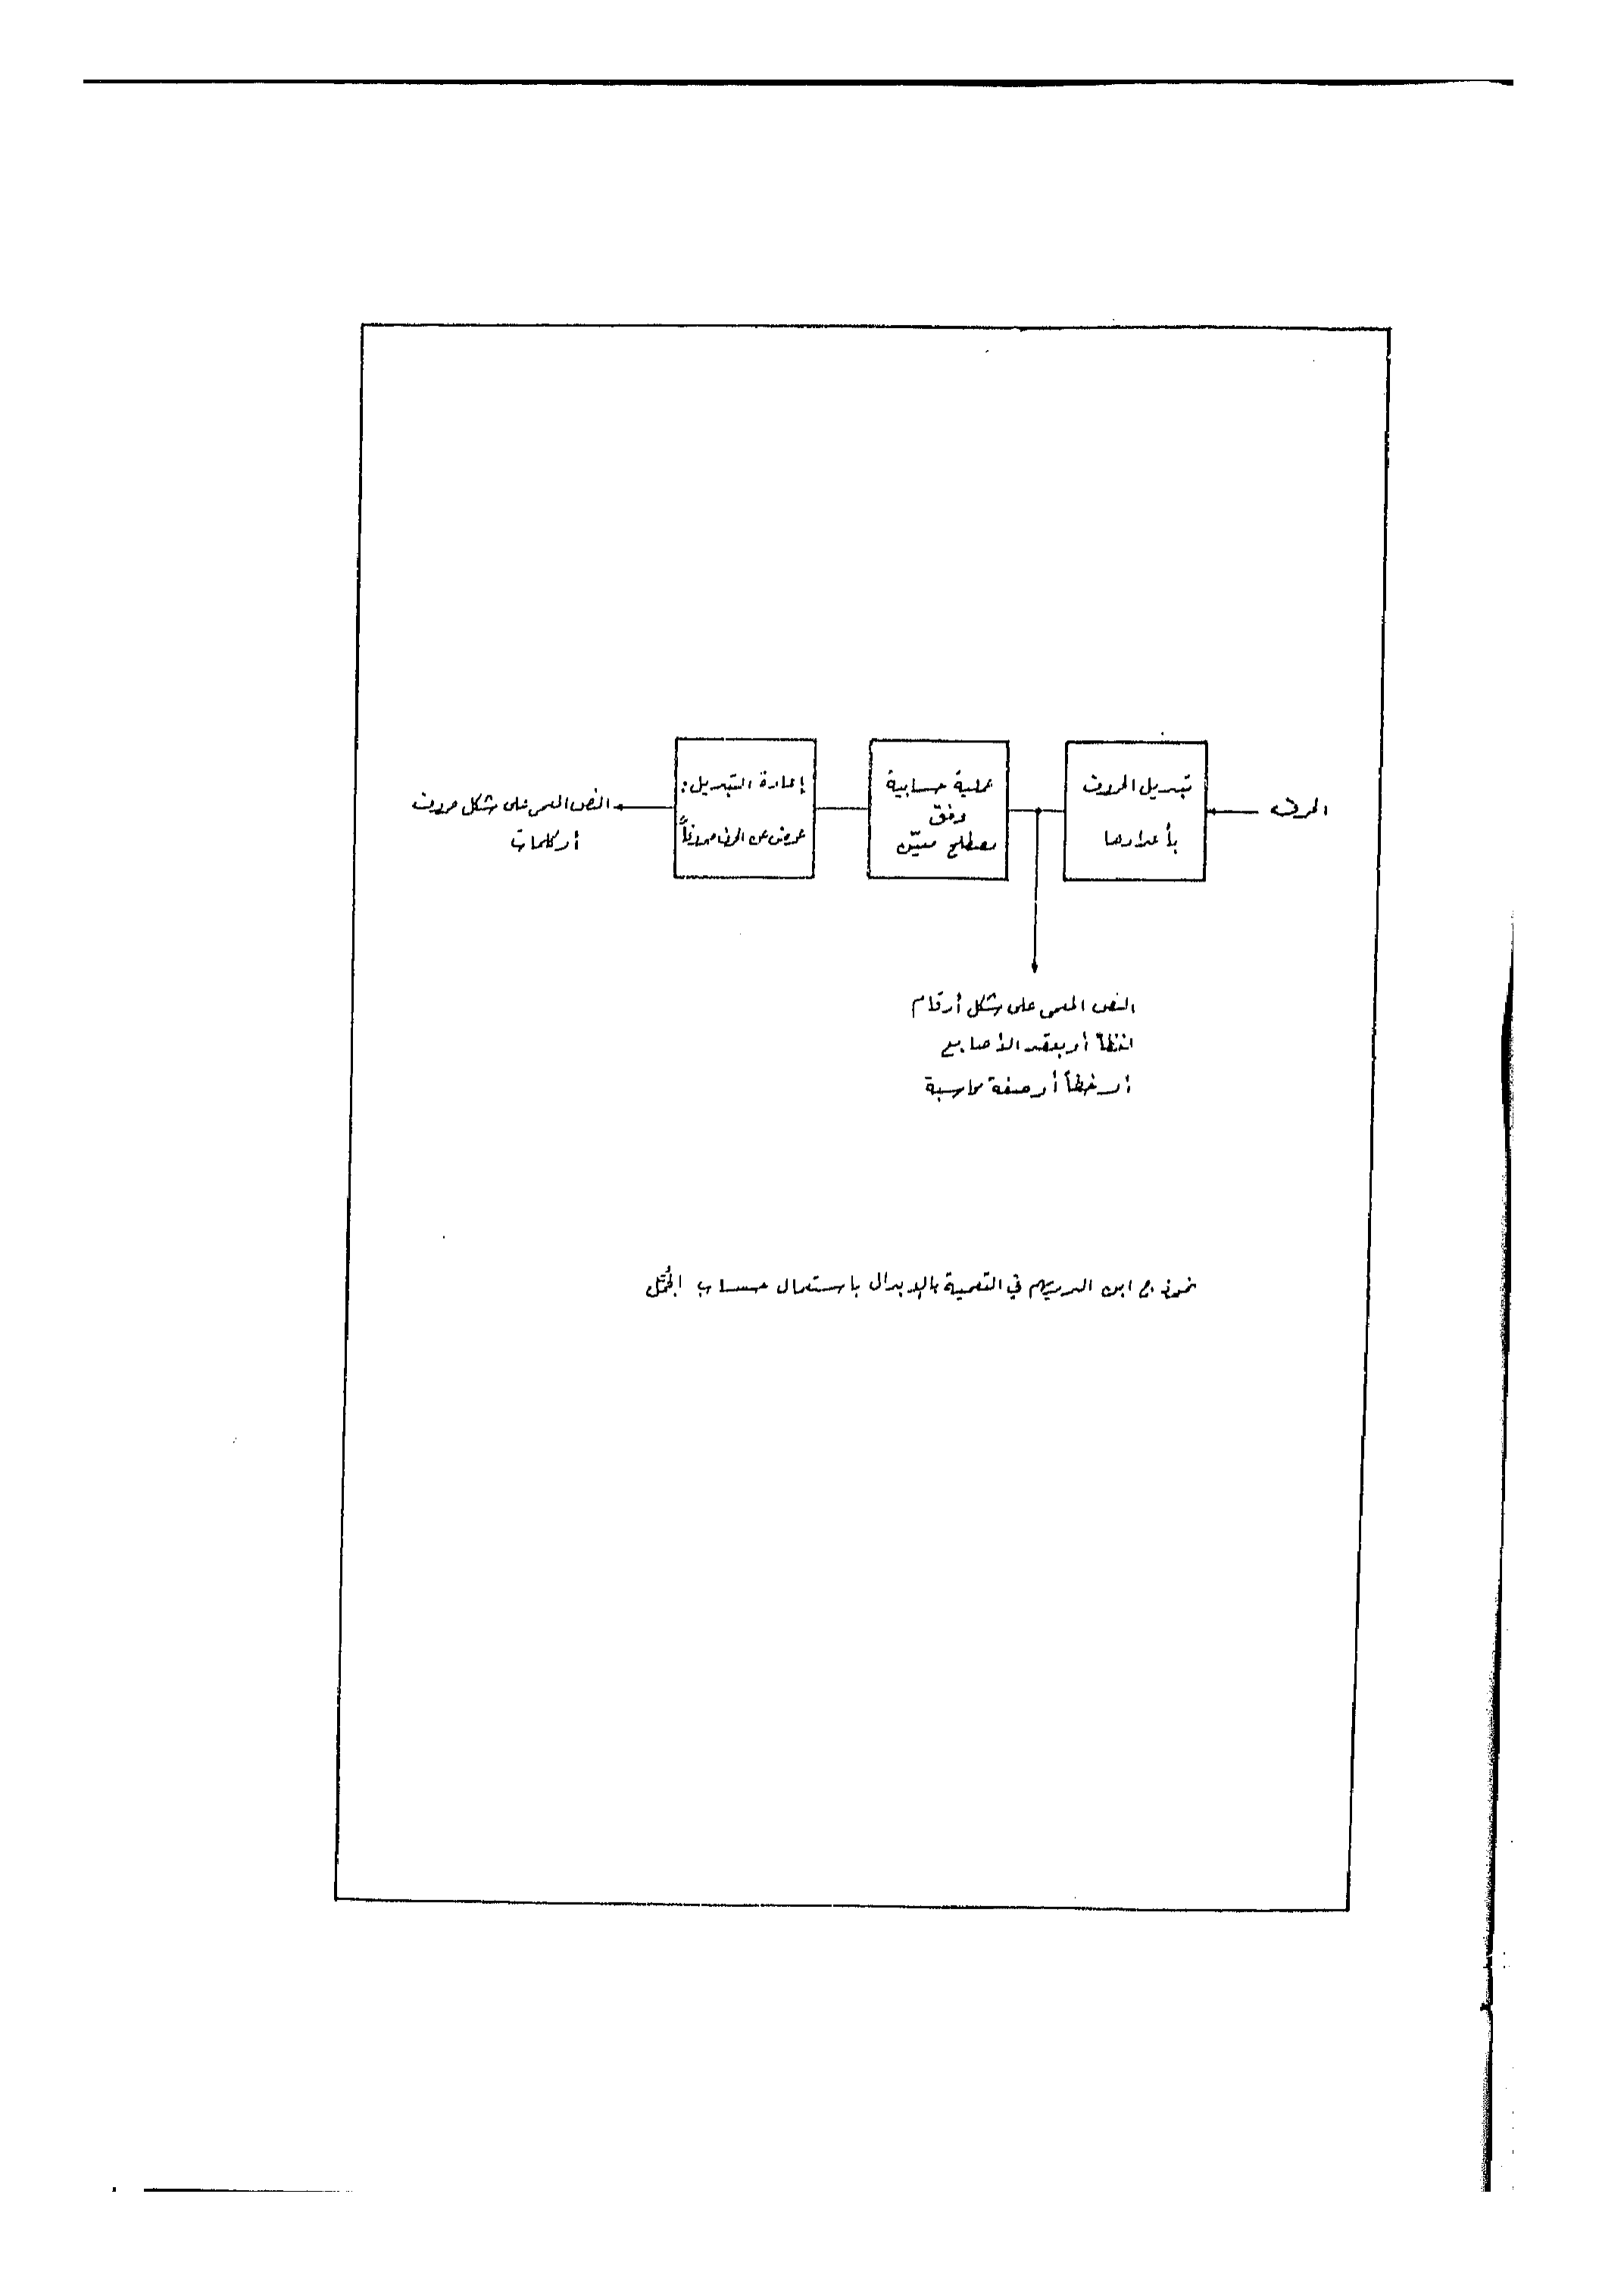 الحرف
تبديل الحروف
بأعدادها
عملية حسابية
وفق
مصطلح معيّن
إعادة التبديل:
عوض عن الحرف حروفاً
النص المعمى على شكل حروف
أو كلمات
النص المعمى على شكل أرقام
لفظاً أو بعقد الأصابع
أو خطاً أو صفة محاسبة
نموذج ابن الدريهم في التعمية بالإبدال باستعمال حساب الجُمَّل